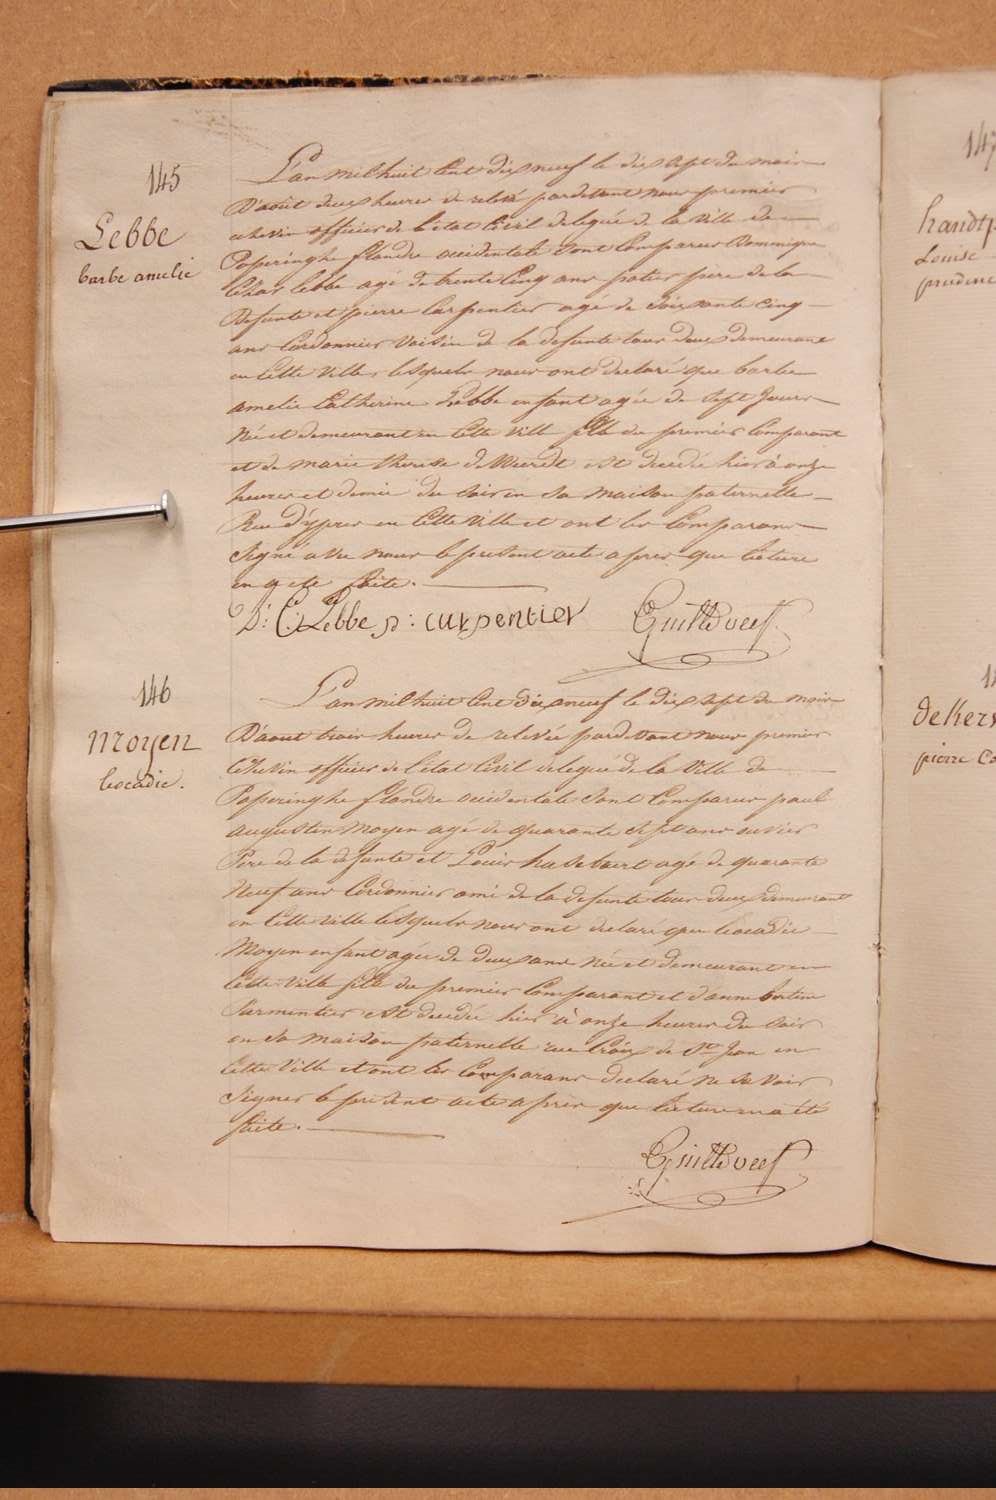 145
Lebbe
barbe amelie
L'an mil huit Cent dix neuf le dix sept du mois
D'aout deux heures de relevé pardevant nous premier
echevin officier de l'état Civil delegué de la Ville de
Poperinghe flandre occidentale sont Comparus Dominique
Cesar lebbe agé de trente Cinq ans patier père de la
Defunte et pierre Carpentier agé de soixante cinq
ans Cordonnier Voisin de la defunte tous deux demeurant
en Cette Ville, lesquels nous ont declaré que barbe
amelie Catherine Lebbe enfant agée de sept Jours
Née et demeurant en Cette Ville fille du premier Comparant
et de marie therese de Weerdt est decedée hier à onze
heures et demie du soir en sa maison paternelle
Rue d'ypres en Cette Ville et ont les Comparans
signé avec nous le present acte apres que lecture
en a été faite.
D: C: Lebbe p: carpentier
146
Moyen
leocadie.
L'an mil huit Cent dix neuf le dix sept de mois
D'aout trois heures de relevée pardevant nous premier
Echevin officier de l'état Civil delegué de la Ville de
Poperinghe flandre occidentale sont Comparus paul
augustin Moyen agé de quarante sept ans ouvrier
Pere de la defunte et Louis hasebaert agé de quarante
Neuf ans Cordonnier ami de la defunte tous deux demeurant
en Cette Ville lesquels nous ont declaré que leocadie
Moyen enfant agée de deux ans Née et demeurant en
Cette Ville fille du premier Comparant et d'anne
Parmentier est decedée hier à onze heures du soir
en sa maison paternelle rue Croix de St Jean en
Cette Ville et ont les Comparans declaré ne savoir
signer le present acte apres que lecture en a été
faite.
147
Louise
14
pierre